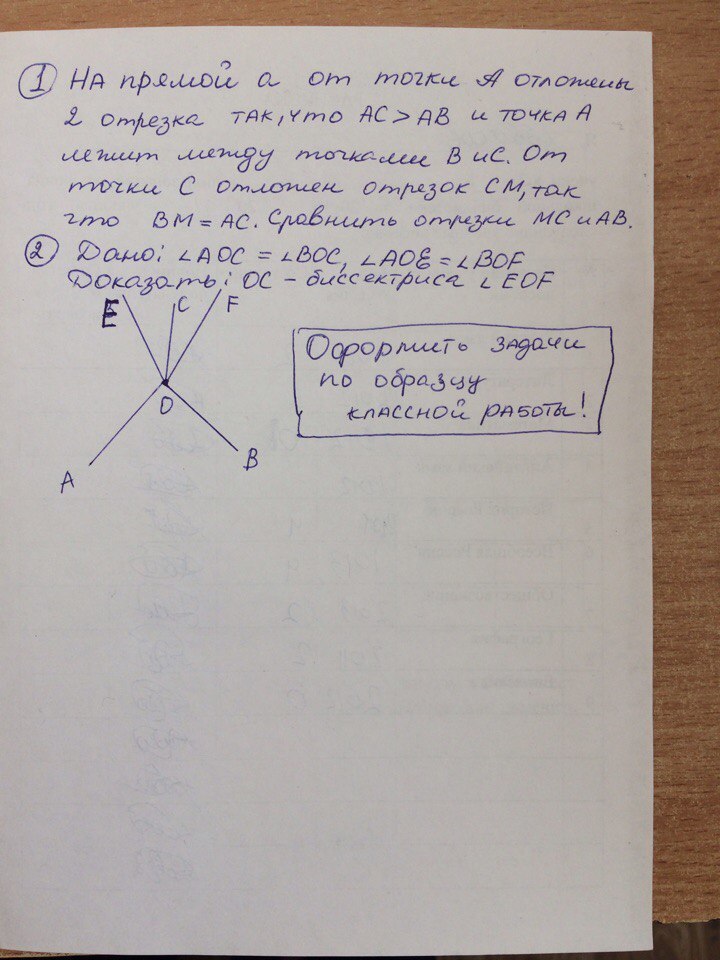 1 На прямой а от точки А отложены
2 отрезка так, что АС > АВ и точка А
лежит между точками В и С. От
точки С отложен отрезок СМ, так
что ВМ = АС. Сравнить отрезки МС и АВ.
2 Дано: ∠АОС = ∠ВОС, ∠АОЕ = ∠BOF
Доказать: ОС – биссектриса ∠EOF
E C F
O
A B
Оформить задачи
по образцу
классной работы!